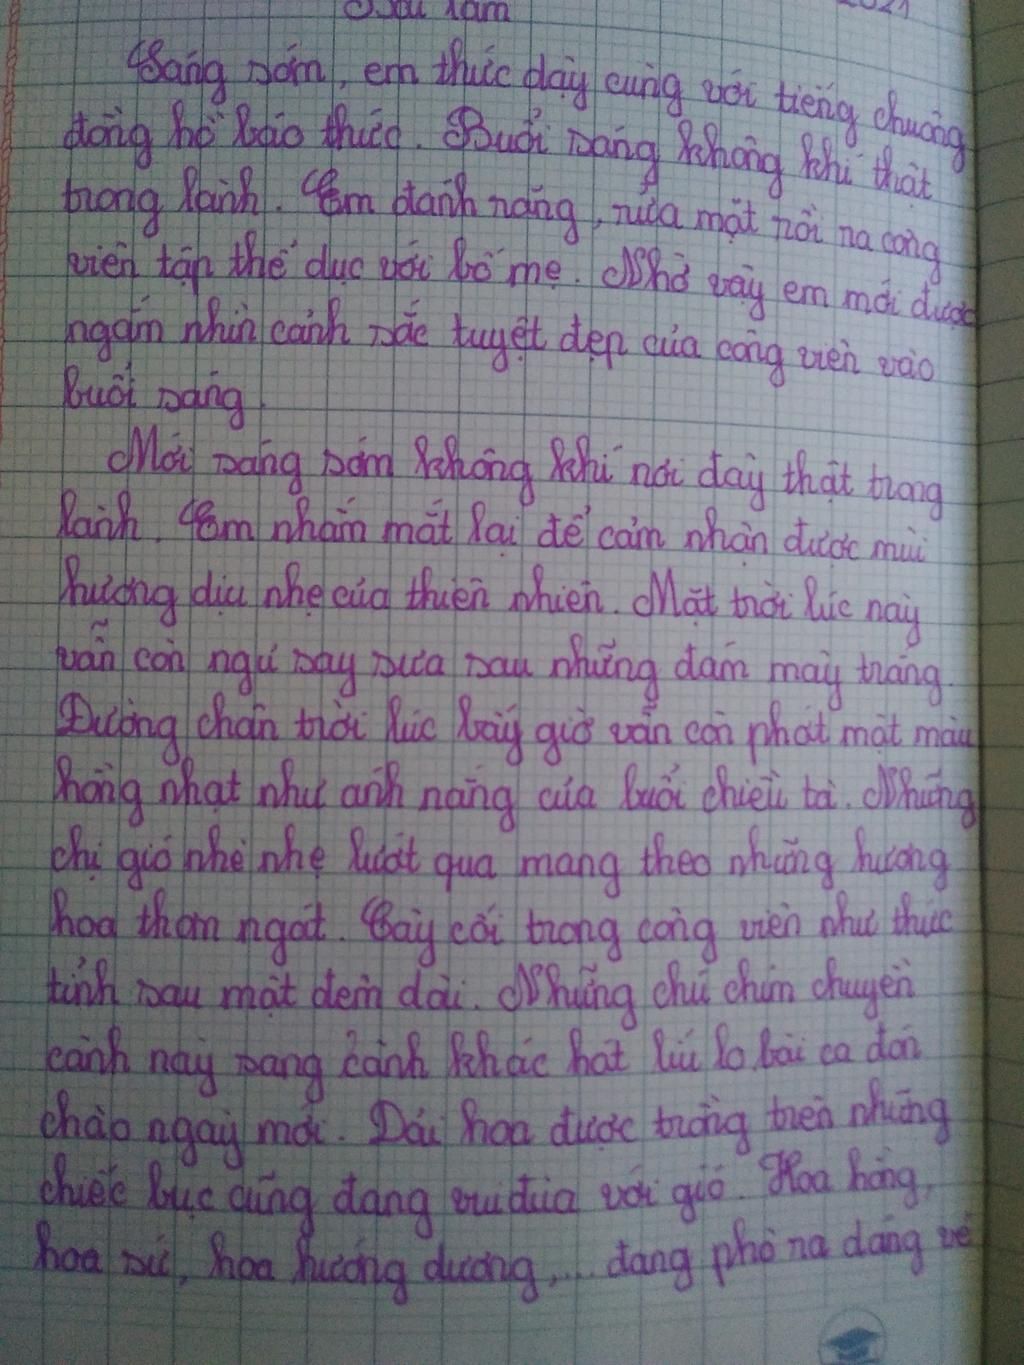 Bài làm
2021
Sáng sớm, em thức dậy cùng với tiếng chuông
đồng hồ báo thức. Buổi sáng không khí thật
trong lành. Em đánh răng, rửa mặt rồi ra công
viên tập thể dục với bố mẹ. Nhờ vậy em mới được
ngắm nhìn cảnh sắc tuyệt đẹp của công viên vào
buổi sáng.
Mới sáng sớm không khí nơi đây thật trong
lành. Em nhắm mắt lại để cảm nhận được mùi
hương dịu nhẹ của thiên nhiên. Mặt trời lúc này
vẫn còn ngủ say sưa sau những đám mây trắng.
Đường chân trời lúc bấy giờ vẫn còn phớt một màu
hồng nhạt như ánh nắng của buổi chiều tà. Những
chị gió nhè nhẹ lướt qua mang theo những hương
hoa thơm ngát. Cây cối trong công viên như thức
tỉnh sau một đêm dài. Những chú chim chuyền
cành này sang cành khác hát líu lo bài ca đón
chào ngày mới. Dải hoa được trồng trên những
chiếc bục cũng đang vui đùa với gió. Hoa hồng,
hoa sứ, hoa hướng dương,... đang phô ra dáng vẻ